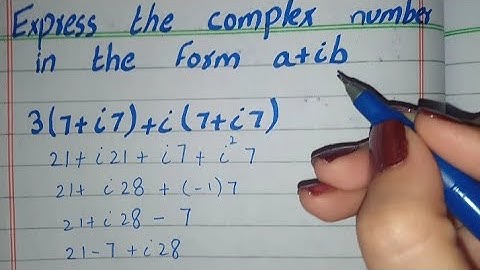 Express the complex number
in the form a+ib
3(7+i7)+i(7+i7)
21+i21+i7+i²7
21+i28+(-1)7
21+i28-7
21-7+i28